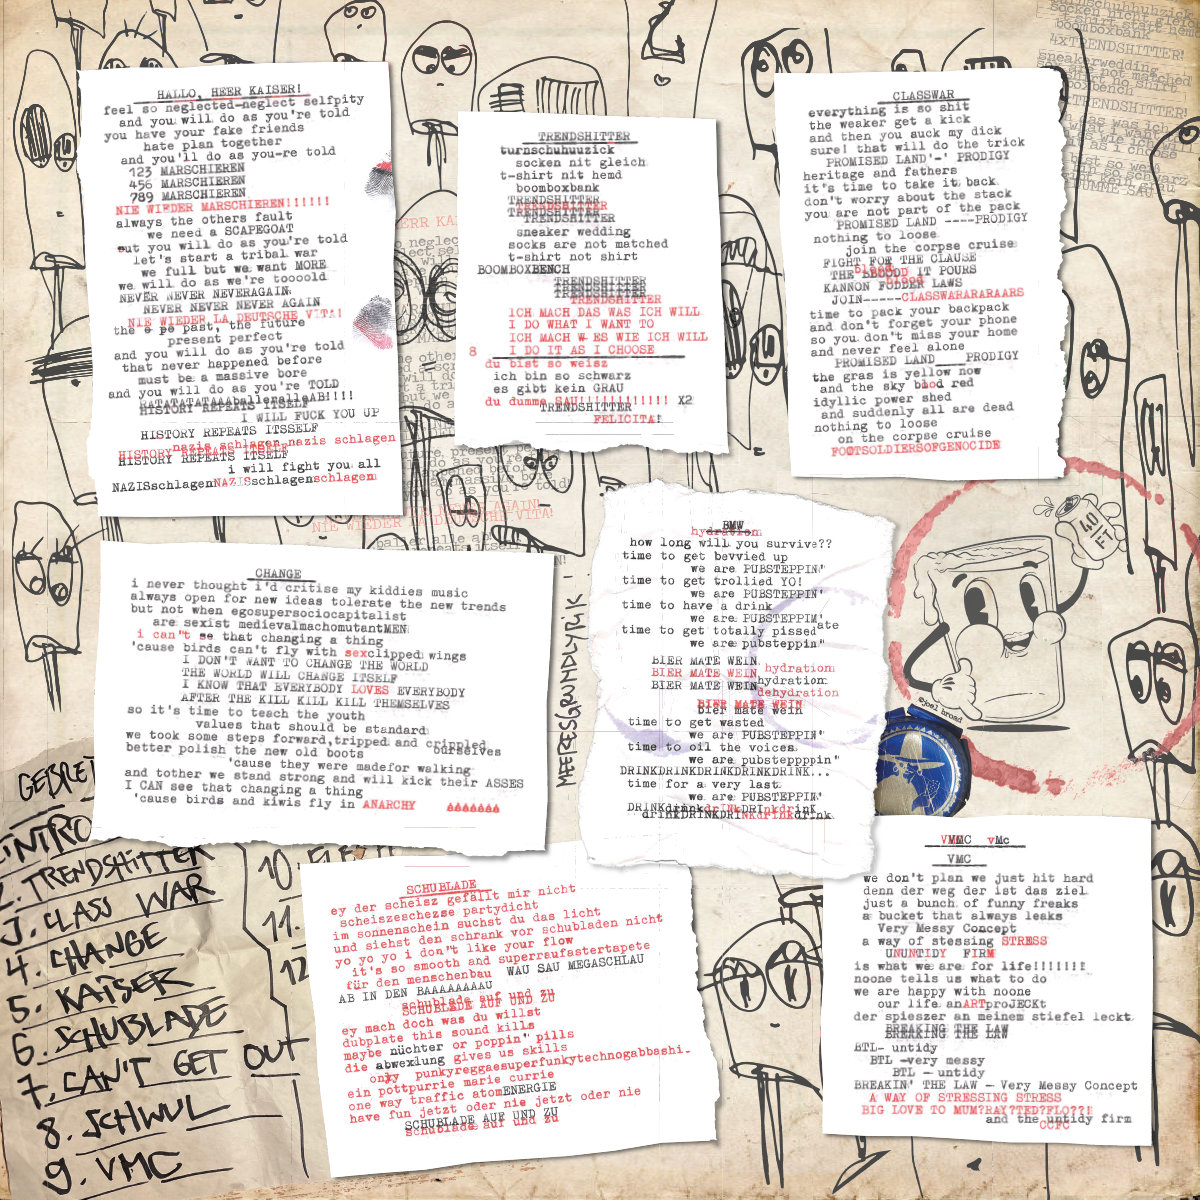 HALLO, HERR KAISER!
feel so neglected-neglect selfpity
and you will do as you're told
you have your fake friends
hate plan together
and you'll do as you-re told
123 MARSCHIEREN
456 MARSCHIEREN
789 MARSCHIEREN
NIE WIEDER MARSCHIEREN!!!!!!
always the others fault
we need a SCAPEGOAT
but you will do as you're told
let's start a tribal war
we full but we want MORE
we will do as we're toooold
NEVER NEVER NEVERAGAIN
NEVER NEVER NEVER AGAIN
NIE WIEDER LA DEUTSCHE VITA!
the past, the future
present perfect
and you will do as you're told
that never happened before
must be a massive bore
and you will do as you're TOLD
RATATATATAAAballeralleAH!!!!
HISTORY REPEATS ITSELF
I WILL FUCK YOU UP
HISTORY REPEATS ITSSELF
nazis schlagen nazis schlagen
HISTORY REPEATS ITSELF
HISTORY REPEATS ITSELF
i will fight you all
NAZISschlagenNAZISschlagenschlagen
TRENDSHITTER
turnschuhuuzick
socken nit gleich
t-shirt nit hemd
boomboxbank
TRENDSHITTER
TRENDSHITTER
TRENDSHITTER
TRENDSHITTER
sneaker wedding
socks are not matched
t-shirt not shirt
BOOMBOXBENCH
TRENDSHITTER
TRENDSHITTER
TRENDSHITTER
ICH MACH DAS WAS ICH WILL
I DO WHAT I WANT TO
ICH MACH W ES WIE ICH WILL
8 I DO IT AS I CHOOSE
du bist so weisz
ich bin so schwarz
es gibt kein GRAU
du dumme SAU!!!!!!!!!!!! X2
TRENDSHITTER
FELICITA!
CLASSWAR
everything is so shit
the weaker get a kick
and then you suck my dick
sure! that will do the trick
PROMISED LAND'-' PRODIGY
heritage and fathers
it's time to take it back
don't worry about the stack
you are not part of the pack
PROMISED LAND ----PRODIGY
nothing to loose
join the corpse cruise
FIGHT FOT THE CLAUSE
THE blood IT POURS
KANNON FODDER LAWS
JOIN------CLASSWARARARAARS
time to pack your backpack
and don't forget your phone
so you don't miss your home
and never feel alone
PROMISED LAND____PRODIGY
the gras is yellow now
and the sky red
idyllic power shed
and suddenly all are dead
nothing to loose
on the corpse cruise
FOOTSOLDIERSOFGENOCIDE
CHANGE
i never thought i'd critise my kiddies music
always open for new ideas tolerate the new trends
but not when egosupersociocapitalist
are sexist medievalmachomutantMEN
i can"t se that changing a thing
'cause birds can't fly with sexclipped wings
I DON'T WANT TO CHANGE THE WORLD
THE WORLD WILL CHANGE ITSELF
I KNOW THAT EVERYBODY LOVES EVERYBODY
AFTER THE KILL KILL KILL THEMSELVES
so it's time to teach the youth
values that should be standard
we took some steps forward,tripped and crippled
ourselves
better polish the new old boots
'cause they were madefor walking
and tother we stand strong and will kick their ASSES
I CAN see that changing a thing
'cause birds and kiwis fly in ANARCHY
MEERESGRUNDLYRIK
BMW
hydration
how long will you survive??
time to get bevvied up
we are PUBSTEPPIN'
time to get trollied YO!
we are PUBSTEPPIN'
time to have a drink
we are PUBSTEPPIM'
time to get totally pissed
ate
we are pubsteppin"
BIER MATE WEIN
hydration
BIER MATE WEIN
hydration
BIER MATE WEIN
dehydration
BIER MATE WEIN
bier mate wein
time to get wasted
we are PUBSTEPPIN"
time to oil the voices
we are pubsteppppin"
DRINKDRINKDRINKDRINKDRINK...
time for a very last
we are PUBSTEPPIN'
DRINKdrinkdrINKDRInkdrinK
drinKDRINKDRINKdrinkdrink
40
FT
goal broad
SCHUBLADE
ey der scheisz gefällt mir nicht
scheiszeschezse partydicht
im sonnenschein suchst du das licht
und siehst den schrank vor schubladen nicht
yo yo yo i don"t like your flow
it's so smooth and superraufastertapete
für den menschenbau WAU SAU MEGASCHLAU
AB IN DEN BAAAAAAAU
schublade auf und zu
SCHUBLADE AUF UND ZU
ey mach doch was du willst
dubplate this sound kills
maybe nüchter or poppin" pills
die abwexlung gives us skills
only punkyreggaesuperfunkytechnogabbashi-
ein pottpurrie marie currie
one way traffic atomENERGIE
have fun jetzt oder nie jetzt oder nie
SCHUBLADE AUF UND ZU
schublade auf und zu
VMC vMc
VMC
we don't plan we just hit hard
denn der weg der ist das ziel
just a bunch of funny freaks
a bucket that always leaks
Very Messy Concept
a way of stessing STRESS
UNUNTIDY FIRM
is what we are for life!!!!!!!
noone tells us what to do
we are happy with noone
our life anARTproJECKt
der spieszer an meinem stiefel leckt
BREAKING THE LAW
BREAKING THE LAW
BTL- untidy
BTL -very messy
BTL - untidy
BREAKIN' THE LAW - Very Messy Concept
A WAY OF STRESSING STRESS
BIG LOVE TO MUM?RAY?TED?FLO??!
and the untidy firm
CCFC
INTRO
2. TRENDSHITTER
3. CLASS WAR
4. CHANGE
5. KAISER
6. SCHUBLADE
7. CAN'T GET OUT
8. SCHWUL
9. VMC
10.
11.
12